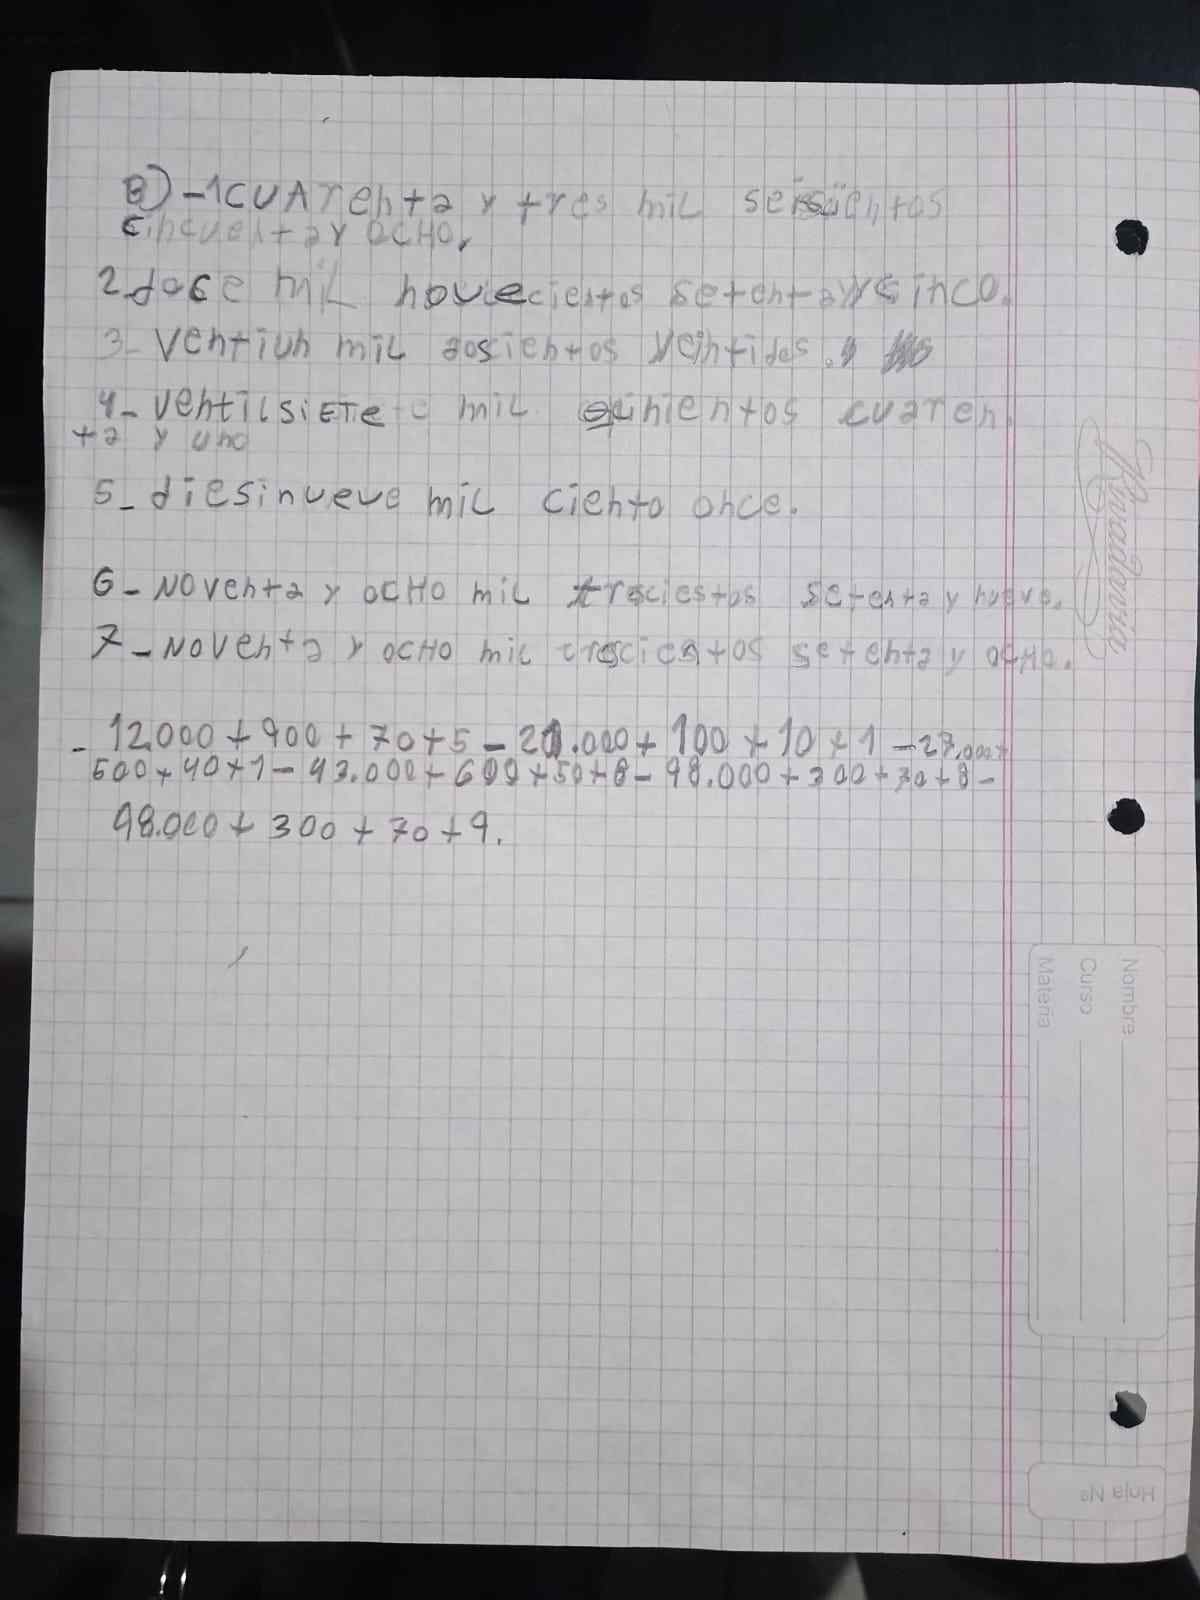 B) -1 CUArenta y tres mil seiscientos
cincuenta y OCHO,
2 dose mil noveccientos setenta y sinco.
3- Ventiun mil dosientos veintidos.
4- ventilsiete mil qinientos cuaren
ta y uno
5- diesinueve mil ciento once.
6- Noventa y OCHO mil tresciestos setenta y nueve.
7- Noventa y OCHO mil tresciestos setenta y OCHO.
- 12.000 + 900 + 70 + 5 - 21.000 + 100 + 10 + 1 - 27.000 +
500 + 40 + 1 - 43.000 + 600 + 50 + 8 - 98.000 + 300 + 70 + 8 -
98.000 + 300 + 70 + 9.
Rivadavia
Nombre
Curso
Materia
Hoja Nº